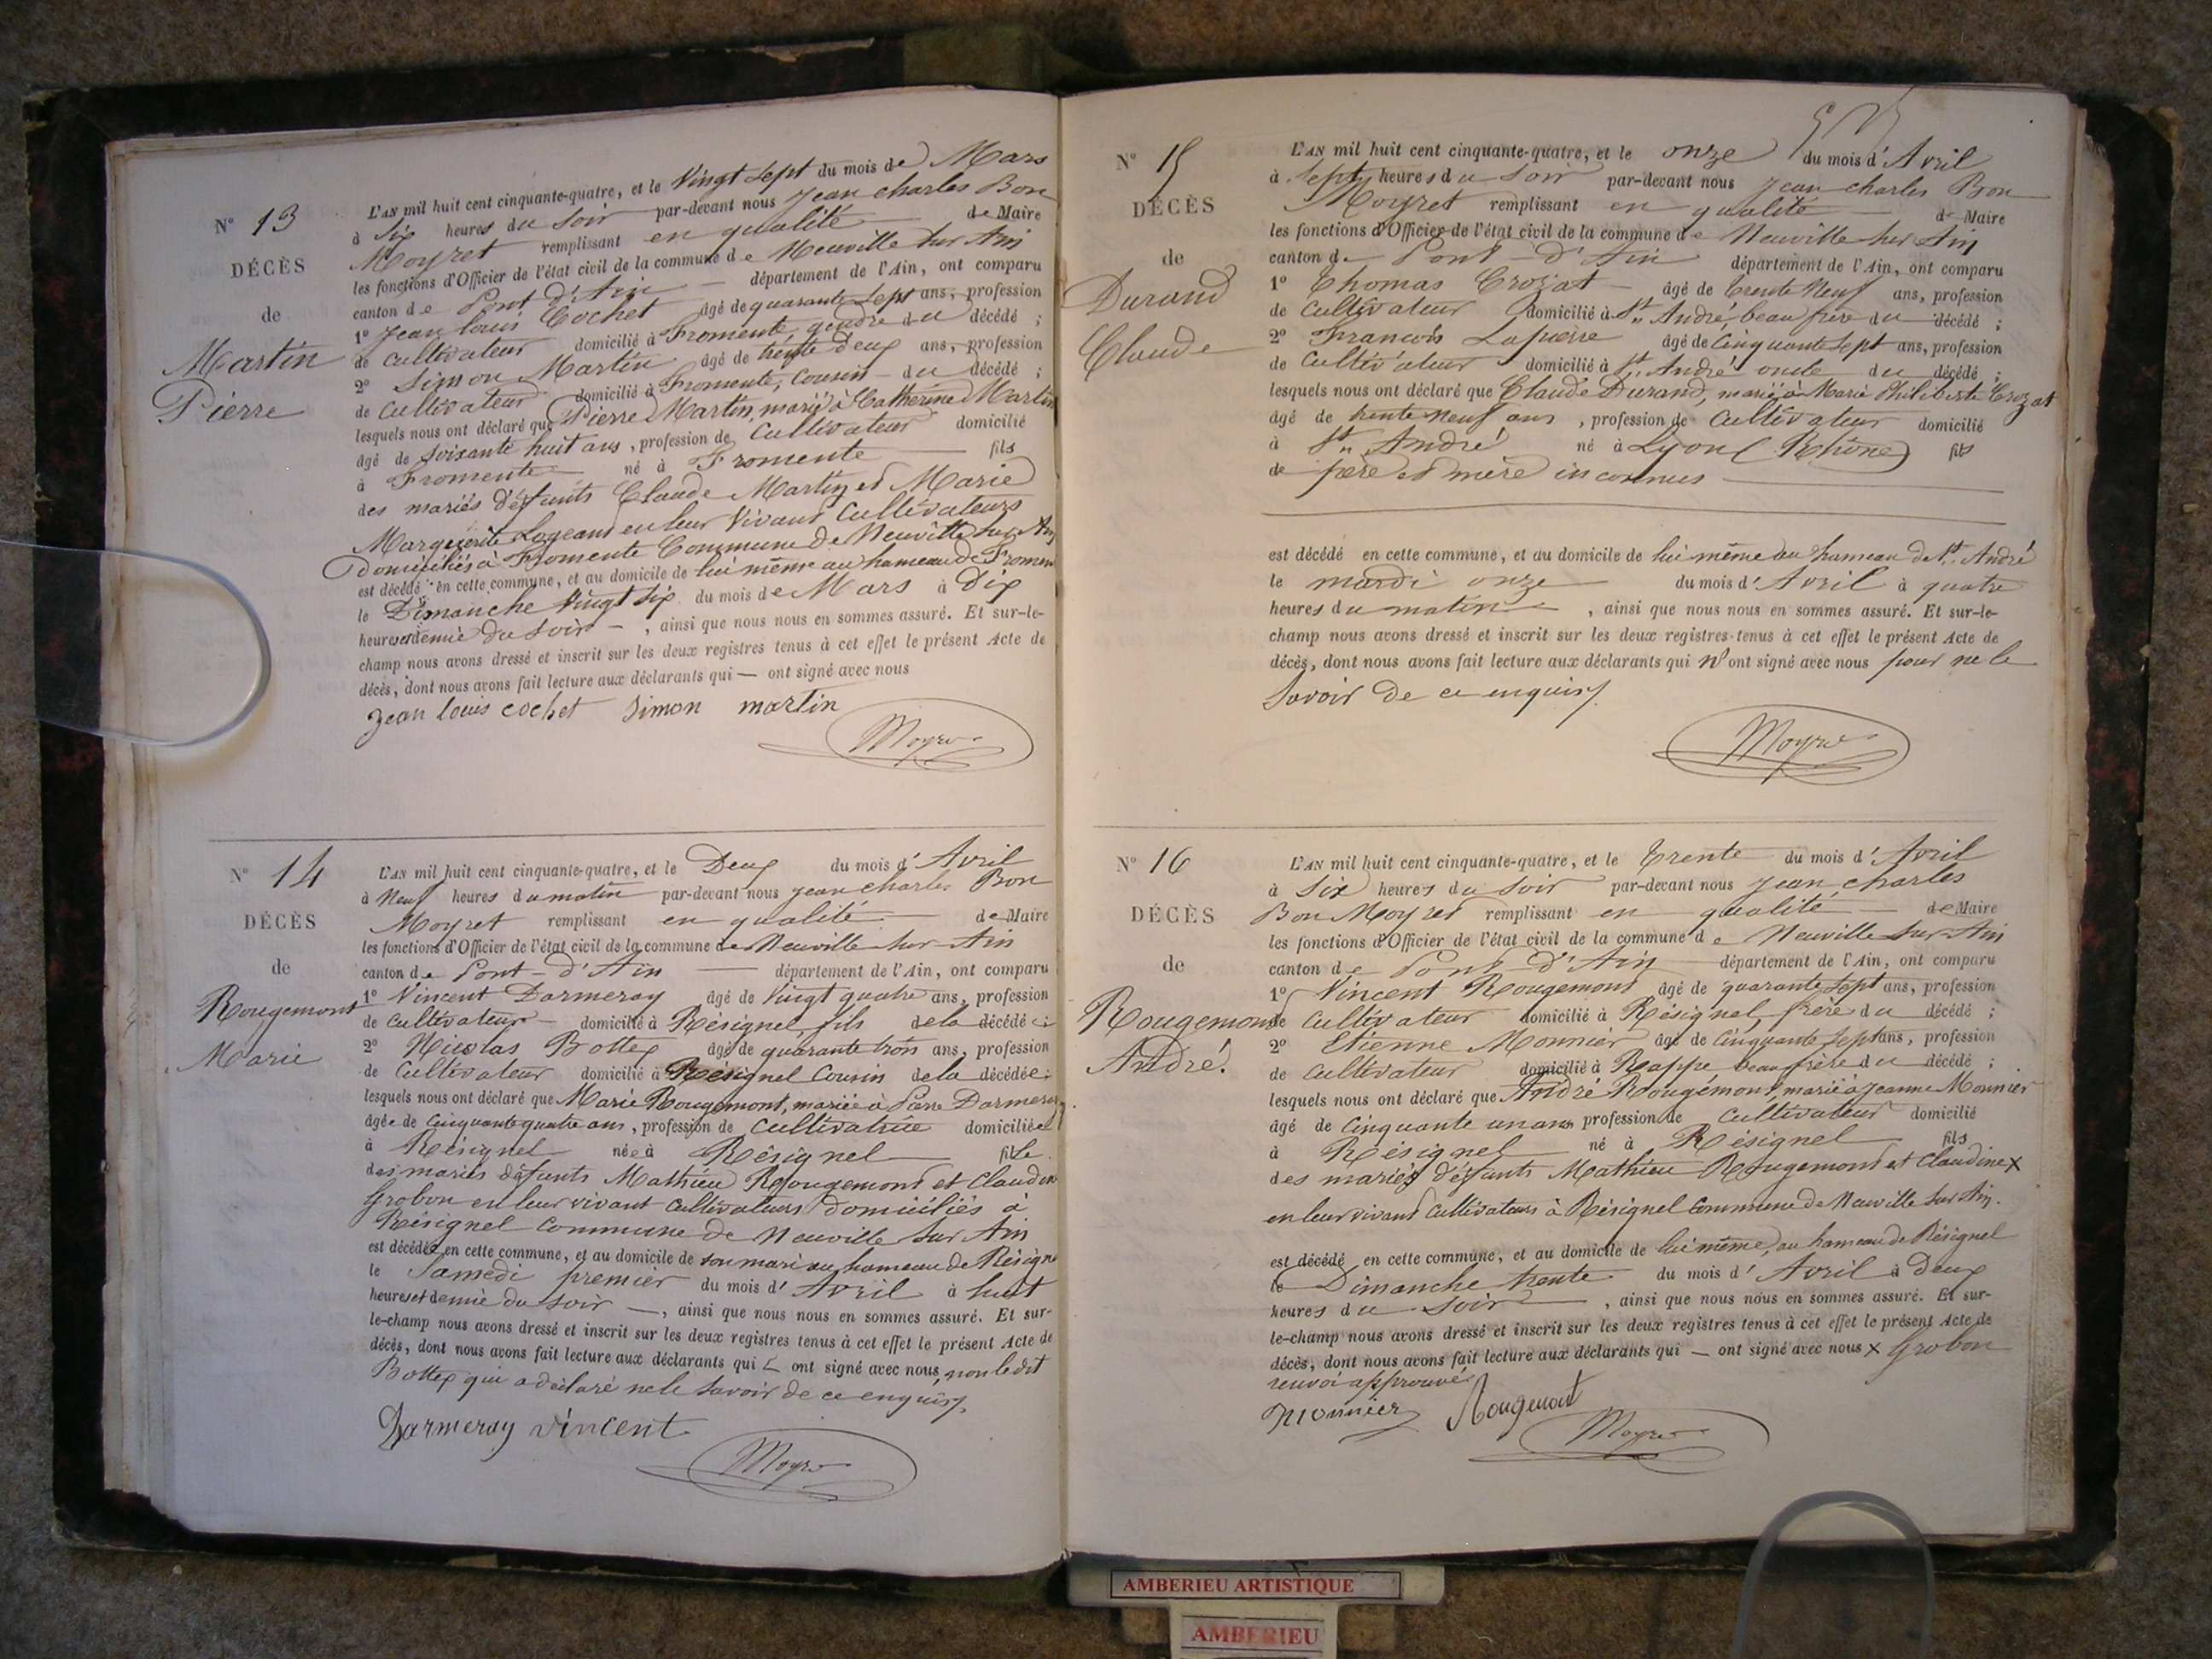 N° 13
DÉCÈS
de
Martin
Pierre
L'AN mil huit cent cinquante-quatre, et le Vingt sept du mois de Mars
à Six heures du Soir par-devant nous Jean Charles Bon
Moyret remplissant en qualité de Maire
les fonctions d'Officier de l'état civil de la commune de Neuville sur Ain
canton de Pont d'Ain département de l'Ain, ont comparu
1° Jean louis Cochet âgé de quarante sept ans, profession
de Cultivateur domicilié à Fromente, gendre du décédé ;
2° Simon Martin âgé de trente deux ans, profession
de Cultivateur domicilié à Fromente, Cousin du décédé ;
lesquels nous ont déclaré que Pierre Martin, marié à Catherine Martin
âgé de Soixante huit ans, profession de Cultivateur domicilié
à Fromente né à Fromente fils
des mariés défunts Claude Martin et Marie
Marguerite en leur Vivant Cultivateurs
Domiciliés à Fromente Commune de Neuville sur Ain
est décédé en cette commune, et au domicile de lui même au hameau de Fromen
le Dimanche Vingt Six du mois de Mars à Dix
heures et demie du Soir , ainsi que nous nous en sommes assuré. Et sur-le-
champ nous avons dressé et inscrit sur les deux registres tenus à cet effet le présent Acte de
décès, dont nous avons fait lecture aux déclarants qui — ont signé avec nous
jean louis cochet Simon martin
Moyret
N° 14
DÉCÈS
de
Rougemont
Marie
L'AN mil huit cent cinquante-quatre, et le Deux du mois d'Avril
à Neuf heures du matin par-devant nous Jean Charles Bon
Moyret remplissant en qualité de Maire
les fonctions d'Officier de l'état civil de la commune de Neuville sur Ain
canton de Pont-d'Ain département de l'Ain, ont comparu
1° Vincent Darmeray âgé de Vingt quatre ans, profession
de Cultivateur domicilié à Résignel, fils de la décédé ;
2° Nicolas Bottex âgé de quarante trois ans, profession
de Cultivateur domicilié à Résignel Cousin de la décédée ;
lesquels nous ont déclaré que Marie Rougemont, mariée à Pierre Darmeray
âgée de Cinquante quatre ans, profession de Cultivatrice domiciliée
à Résignel née à Résignel fille
des mariés défunts Mathieu Rougemont et Claudine
Grobon en leur vivant Cultivateurs domiciliés à
Résignel Commune de Neuville sur Ain
est décédée en cette commune, et au domicile de son mari au hameau de Résigne
le Samedi premier du mois d'Avril à huit
heures et demie du Soir —, ainsi que nous nous en sommes assuré. Et sur-
le-champ nous avons dressé et inscrit sur les deux registres tenus à cet effet le présent Acte de
décès, dont nous avons fait lecture aux déclarants qui — ont signé avec nous, non ledit
Bottex qui a déclaré ne le Savoir de ce enquis.
Darmeray vincent
Moyret
N° 15
DÉCÈS
de
Durand
Claude
L'AN mil huit cent cinquante-quatre, et le onze du mois d'Avril
à Sept heures du Soir par-devant nous Jean Charles Bon
Moyret remplissant en qualité de Maire
les fonctions d'Officier de l'état civil de la commune de Neuville sur Ain
canton de Pont-d'Ain département de l'Ain, ont comparu
1° Thomas Crozat âgé de trente Neuf ans, profession
de Cultivateur domicilié à St André, beau frère du décédé ;
2° Francois Lapierre âgé de Cinquante Sept ans, profession
de Cultivateur domicilié à St André oncle du décédé ;
lesquels nous ont déclaré que Claude Durand, marié à Marie Philiberte Crozat
âgé de trente neuf ans, profession de Cultivateur domicilié
à St André né à Lyon (Rhône) fils
de père et mère inconnus
est décédé en cette commune, et au domicile de lui même au hameau de St André
le mardi onze du mois d'Avril à quatre
heures du matin , ainsi que nous nous en sommes assuré. Et sur-le-
champ nous avons dressé et inscrit sur les deux registres tenus à cet effet le présent Acte de
décès, dont nous avons fait lecture aux déclarants qui n'ont signé avec nous pour ne le
Savoir de ce enquis.
Moyret
N° 16
DÉCÈS
de
Rougemont
André.
L'AN mil huit cent cinquante-quatre, et le trente du mois d'Avril
à Six heures du Soir par-devant nous Jean Charles
Bon Moyret remplissant en qualité — de Maire
les fonctions d'Officier de l'état civil de la commune de Neuville sur Ain
canton de Pont-d'Ain département de l'Ain, ont comparu
1° Vincent Rougemont âgé de quarante Sept ans, profession
de Cultivateur domicilié à Résignel, frère du décédé ;
2° Etienne Monnier âgé de Cinquante Sept ans, profession
de Cultivateur domicilié à Rappe beau frère du décédé ;
lesquels nous ont déclaré que André Rougemont, marié à Jeanne Monnier
âgé de Cinquante un ans profession de Cultivateur domicilié
à Résignel né à Résignel fils
des mariés défunts Mathieu Rougemont et Claudine X
en leur vivant Cultivateurs à Résignel Commune de Neuville sur Ain.
est décédé en cette commune, et au domicile de lui même, au hameau de Résignel
le Dimanche trente du mois d'Avril à Deux
heures du Soir , ainsi que nous nous en sommes assuré. Et sur-
le-champ nous avons dressé et inscrit sur les deux registres tenus à cet effet le présent Acte de
décès, dont nous avons fait lecture aux déclarants qui — ont signé avec nous X Grobon
renvoi approuvé
Monnier Rougemont
Moyret
AMBERIEU ARTISTIQUE
AMBERIEU